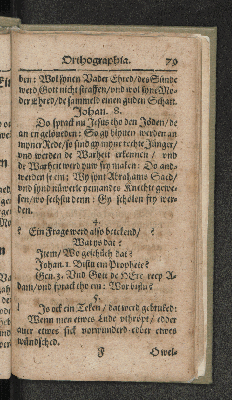 Orthographia. 79
ben: Wol synen Vader Ehred/ des Sünde
werd Gott nicht straffen/ und wol syne Mo-
der Ehred/ de sammeld einen guden Schatt.
Johan. 8.
Do sprack nu Jesus tho den Jöden/ de
an en gelöveden: So gy blyven werden an
myner Rede/ so sind gy myne rechte Jünger/
und werden de Warheit erkennen / und
de Warheit werd juw fry maken: Do and-
werden se em: Wy synt Abrahams Saed/
und synd nüwerle yemandes Knechte gewe-
sen/ wo sechstu denn: Gy scholen fry wer-
den.
4.
? Ein Frage werd also betekend/ ?
Wat ys dat?
Item/ Wo geschüth dat?
Johan. 1. Bistu ein Prophete?
Gen. 3. Und Gott de HEre reep A-
dam/ und sprack tho em: Wor bistu?
5.
! Is ock ein Teken/ dat werd gebruked:
Wenn men etwes Lude uthröpt/ edder
aver etwes sick vorwunderd edder etwes
wünsched.
Wel-